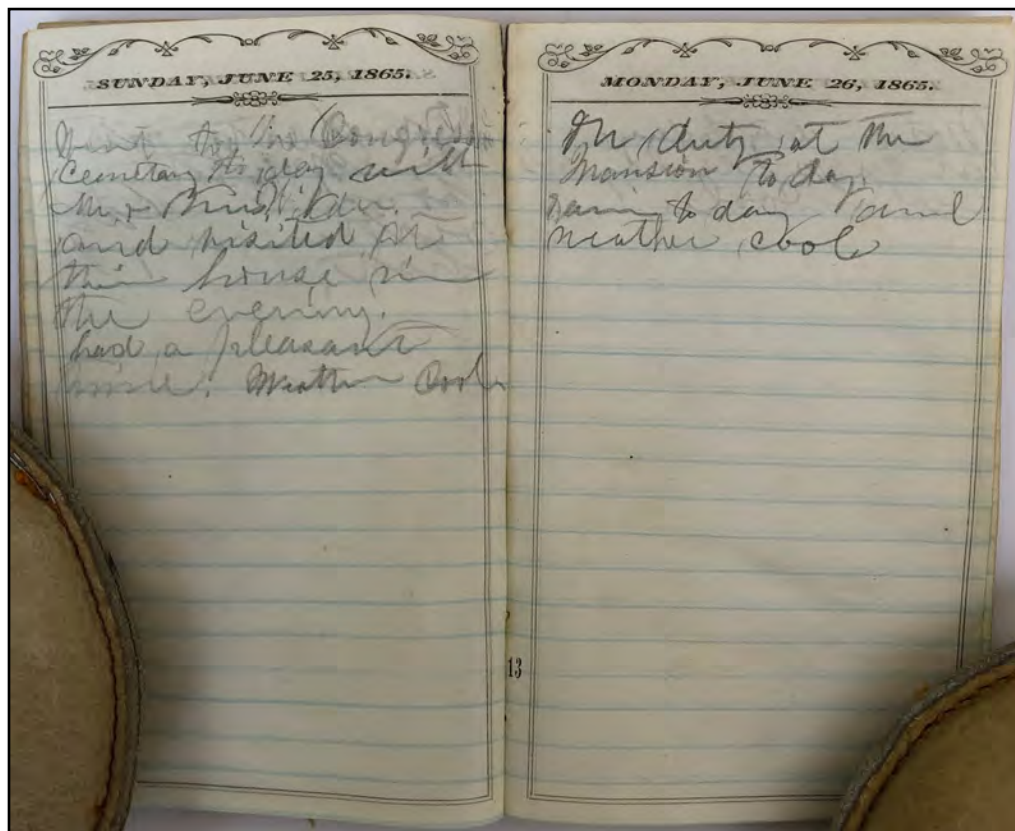 SUNDAY, JUNE 25, 1865.
Went to the Congress
Cemetary to day with
Mr. & Mrs.
and visited at
their house in
the evening.
had a pleasant
time. Weather Cool
MONDAY, JUNE 26, 1865.
On duty at the
Mansion To day.
rain to day and
weather cool
13